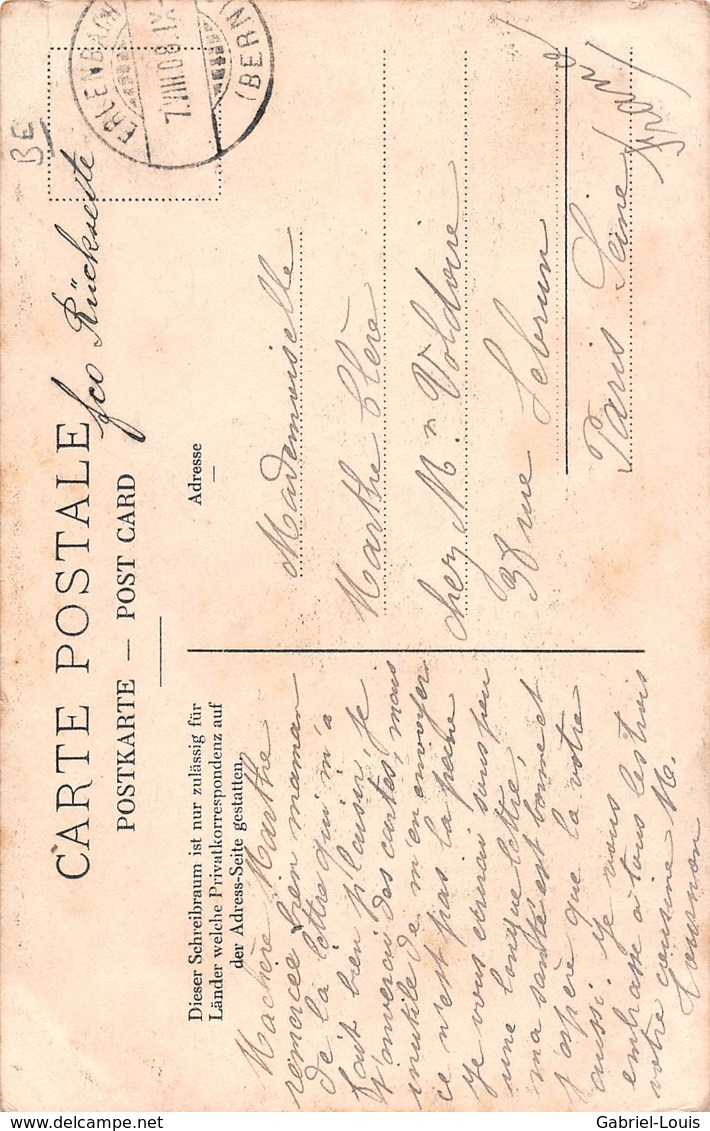 CARTE POSTALE
POSTKARTE — POST CARD
fco Rückseite
BE
ERLENBACH
7.VIII.08.IX-
(BERN)
Dieser Schreibraum ist nur zulässig für
Länder welche Privatkorrespondenz auf
der Adress-Seite gestatten.
Machère Marthe
remercee bien maman
de la lettre qui m'a
fait bien plaisir, je
enverai des cartes, mais
inutile de m'en envoyer
ce n'est pas la peine
Je vous écrirai sous peu
une longue lettre,
ma santé est bonne et
j'espère que la votre
aussi. Je vous
embrasse a tous les trois
votre cousine M.
Tournon
Adresse
Mademoiselle
Marthe Clère
chez Mr. Voldoire
38 rue Lebrun
Paris Seine
Gabriel-Louis